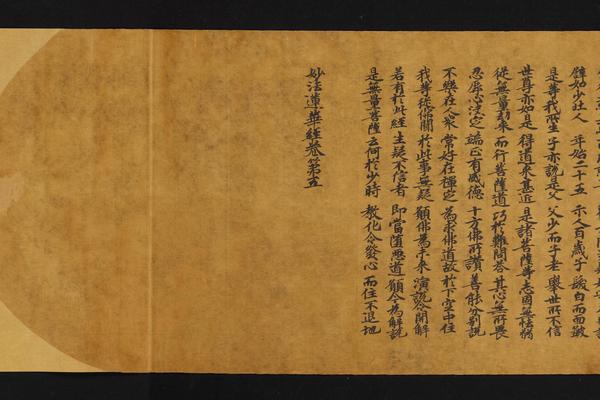 譬如少壮人 年始二十五 示人百歳子 髮白而面皺
是等我所生 子亦説是父 父少而子老 舉世所不信
世尊亦如是 得道来甚近 是諸菩薩等 志固無怯弱
從無量劫来 而行菩薩道 巧於難問答 其心無所畏
忍辱心决定 端正有威德 十方佛所讚 善能分別説
不樂在人衆 常好在禪定 為求佛道故 於下空中住
我等從佛聞 於此事無疑 願佛為未来 演説令開解
若有於此經 生疑不信者 即當墮惡道 願今為解説
是無量菩薩 云何於少時 教化令發心 而住不退地
妙法蓮華經卷第五